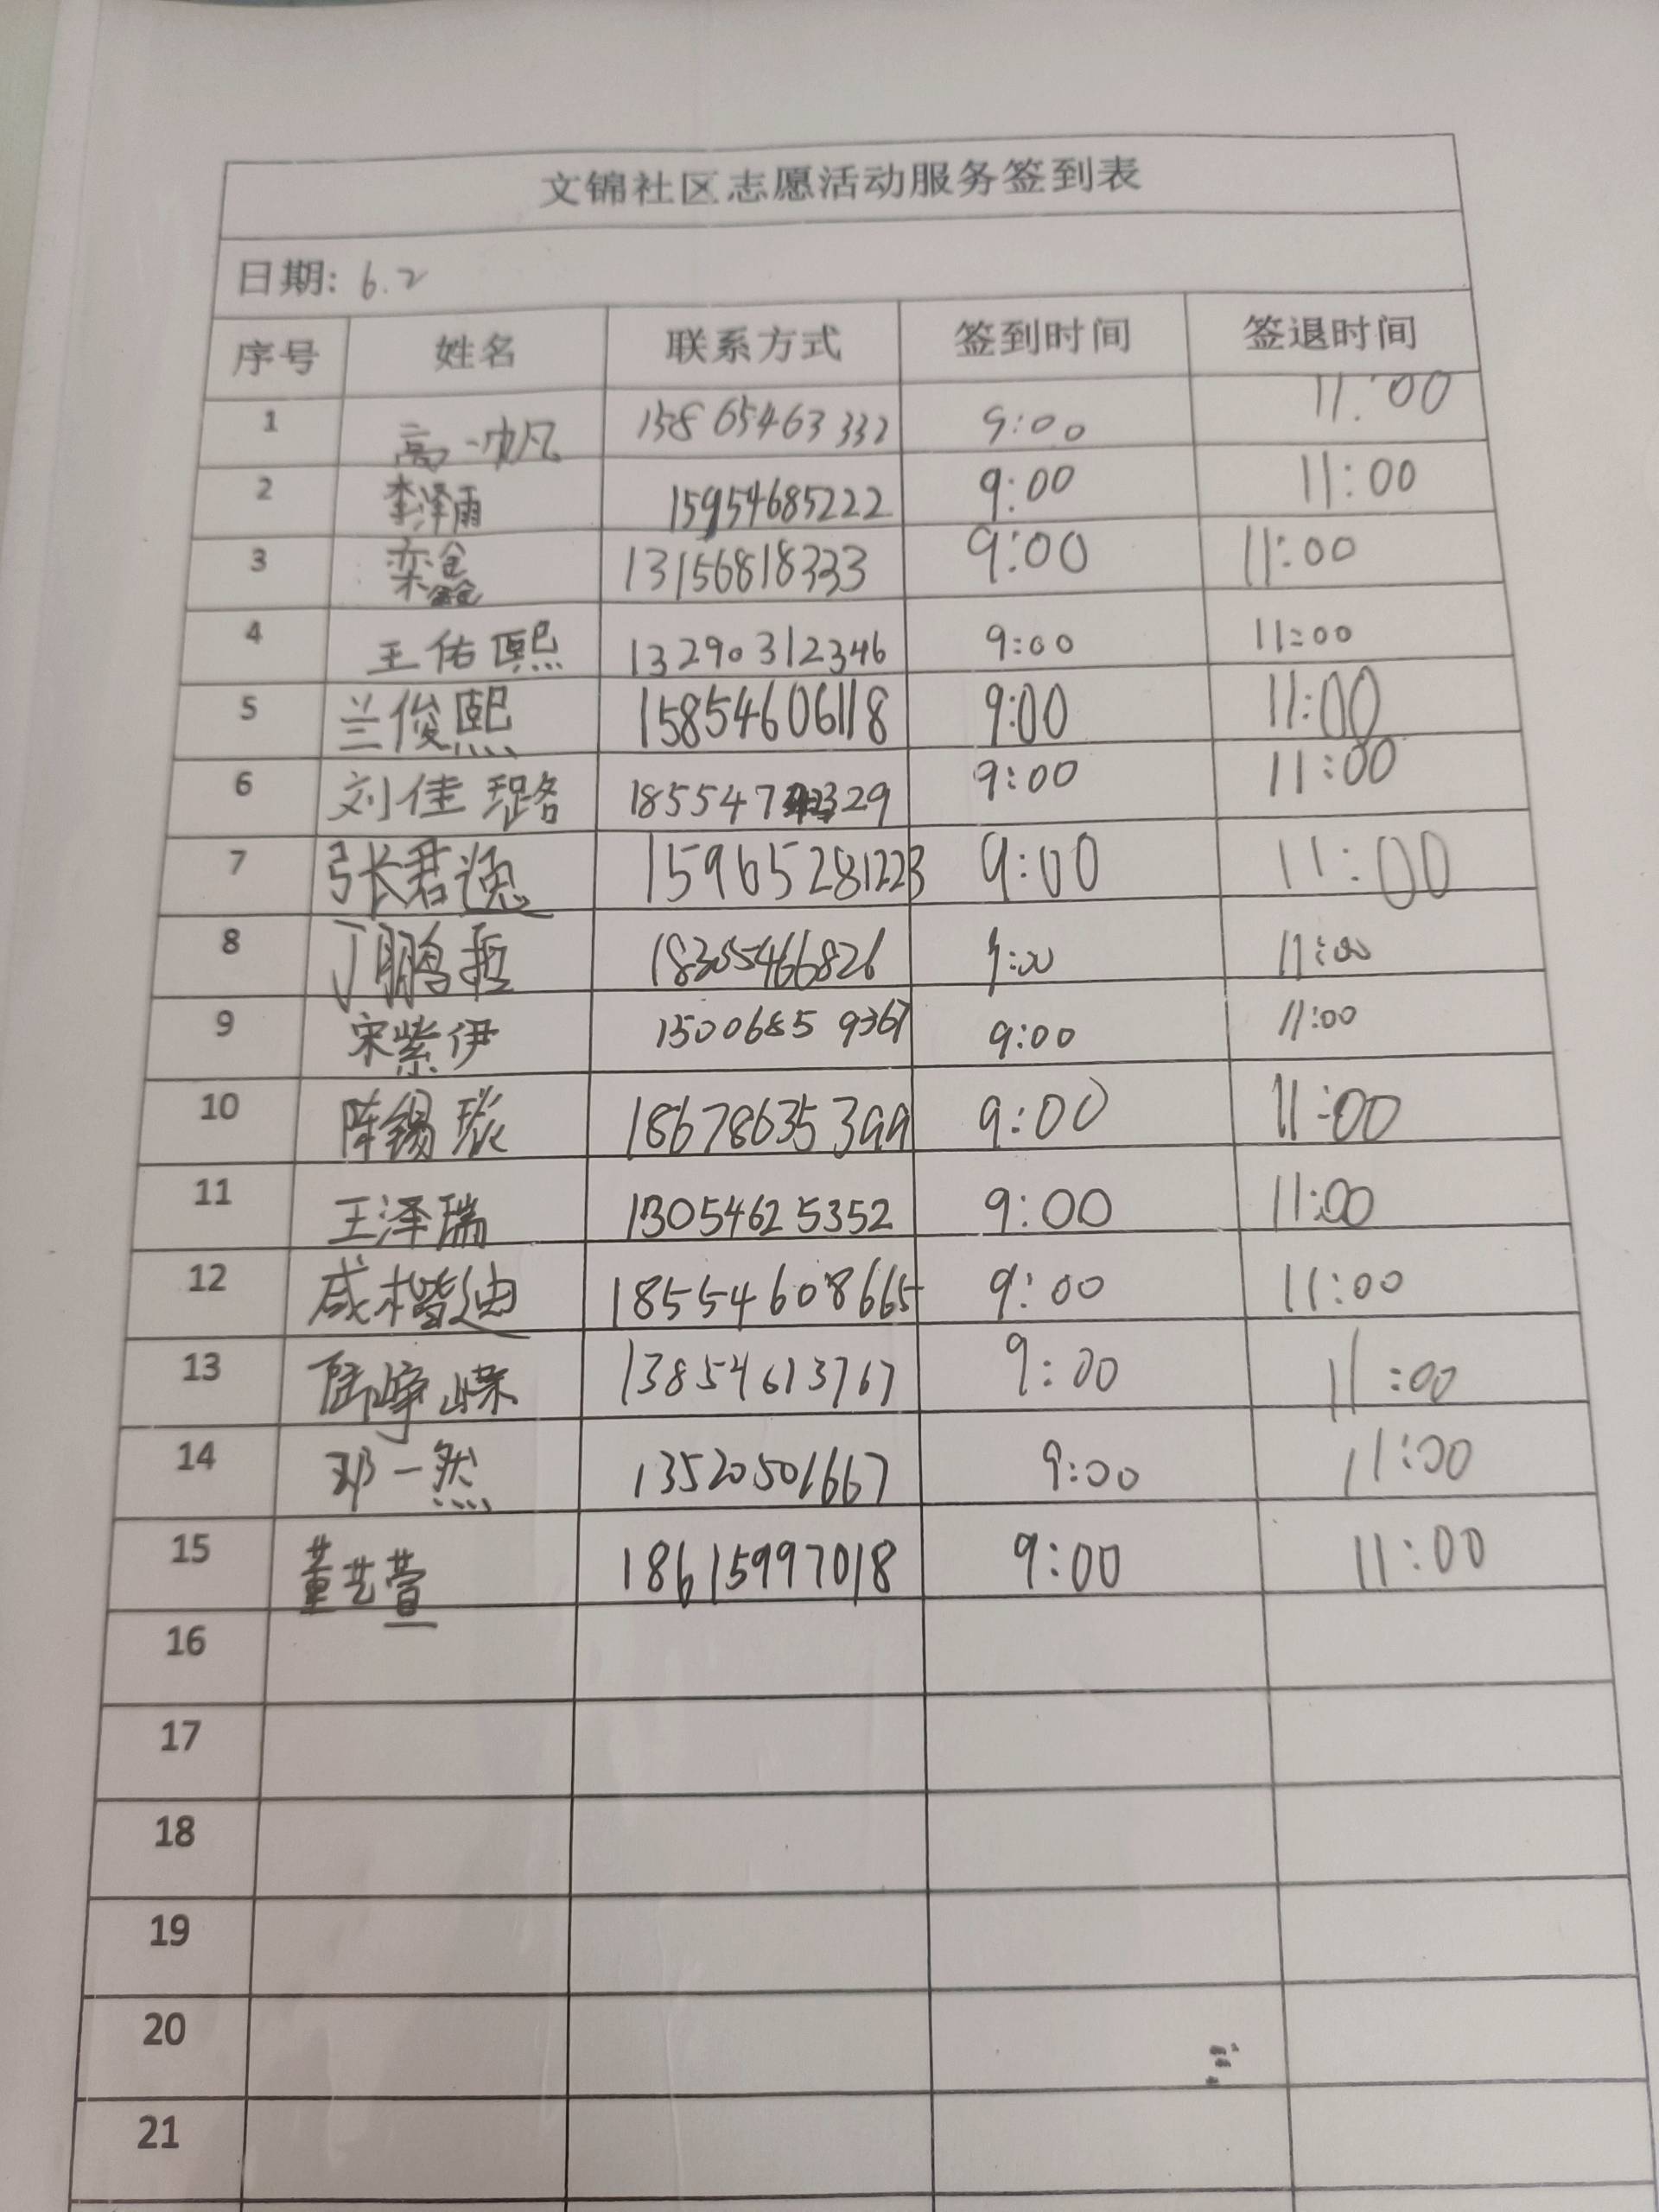 文锦社区志愿活动服务签到表
日期: 6.2
序号 姓名 联系方式 签到时间 签退时间
1 高一帆 15865463332 9:00 11:00
2 李泽雨 15954685222 9:00 11:00
3 栾鑫 13156818333 9:00 11:00
4 王佑熙 13290312346 9:00 11:00
5 兰俊熙 15854606118 9:00 11:00
6 刘佳璐 9:00 11:00
7 张君逸 15965281223 9:00 11:00
8 丁鹏哲 18305466826 9:00 11:00
9 宋紫伊 15006859367 9:00 11:00
10 陈锡琰 18678635399 9:00 11:00
11 王泽瑞 13054625352 9:00 11:00
12 咸楷迪 18554608665 9:00 11:00
13 陆峥嵘 13854613767 9:00 11:00
14 邓一然 13520501667 9:00 11:00
15 董艺萱 18615997018 9:00 11:00
16
17
18
19
20
21